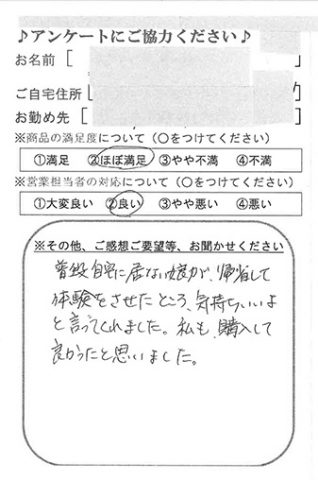 ♪アンケートにご協力ください♪
お名前[ ]
ご自宅住所[ ]
お勤め先[ ]
※商品の満足度について(○をつけてください)
①満足 ②ほぼ満足 ③やや不満 ④不満
※営業担当者の対応について(○をつけてください)
①大変良い ②良い ③やや悪い ④悪い
※その他、ご感想ご要望等、お聞かせください
普段自宅に居ない娘が、帰省して
体験をさせたところ、気持ちいいよ
と言ってくれました。私も、購入して
良かったと思いました。